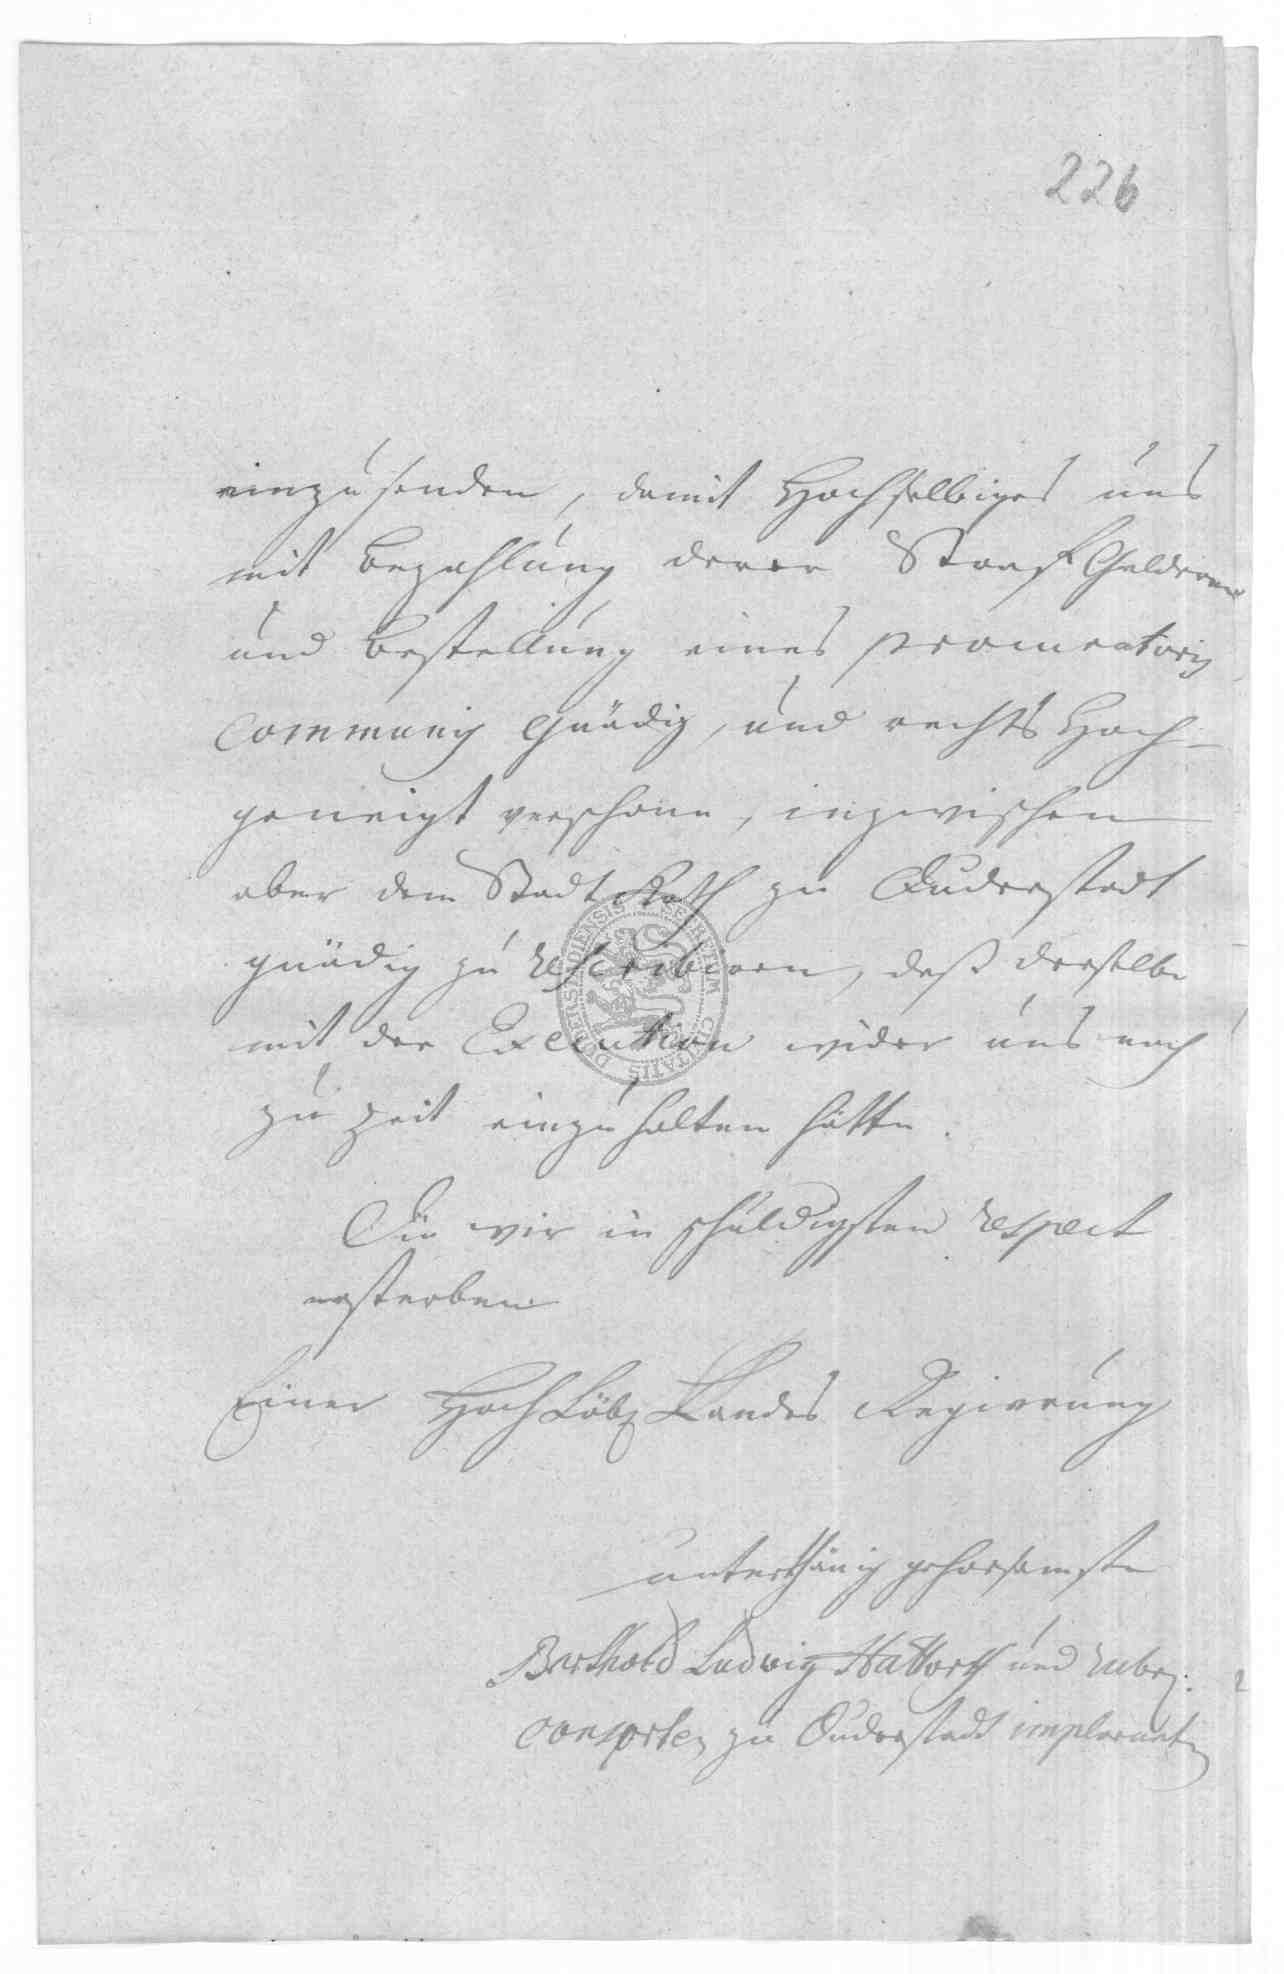 226
einzusenden, damit Hochselbiges uns
mit Bezahlung derer Straf Gelderen
und Bestellung eines procuratoris
communis Gnädig, und rechts Hoch-
geneigt verschone, inzwischen
aber dem Stadt Rath zu Duderstadt
gnädig zu rescribiren, daß derselbe
mit der Execution wider uns noch
zu Zeit einzuhalten hätte.
Die wir in schuldigsten respect
ersterben
Einer HochLöbl Landes Regierung
unterthänig gehorsamste
Berthold Ludwig Hattorff und rubr.
consorten zu Duderstadt implorant
SECRETUM CIVITATIS DUDERSTADIENSIS